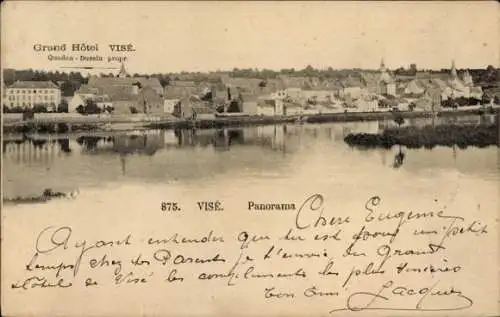 Grand Hôtel VISÉ.
propr
875. VISÉ. Panorama
Chère Eugenie
Ayant entendu que tu est pour un petit
temps chez les Parents je t'envoie du Grand
Hôtel de Visé les compliments les plus
Ton ami Jacques